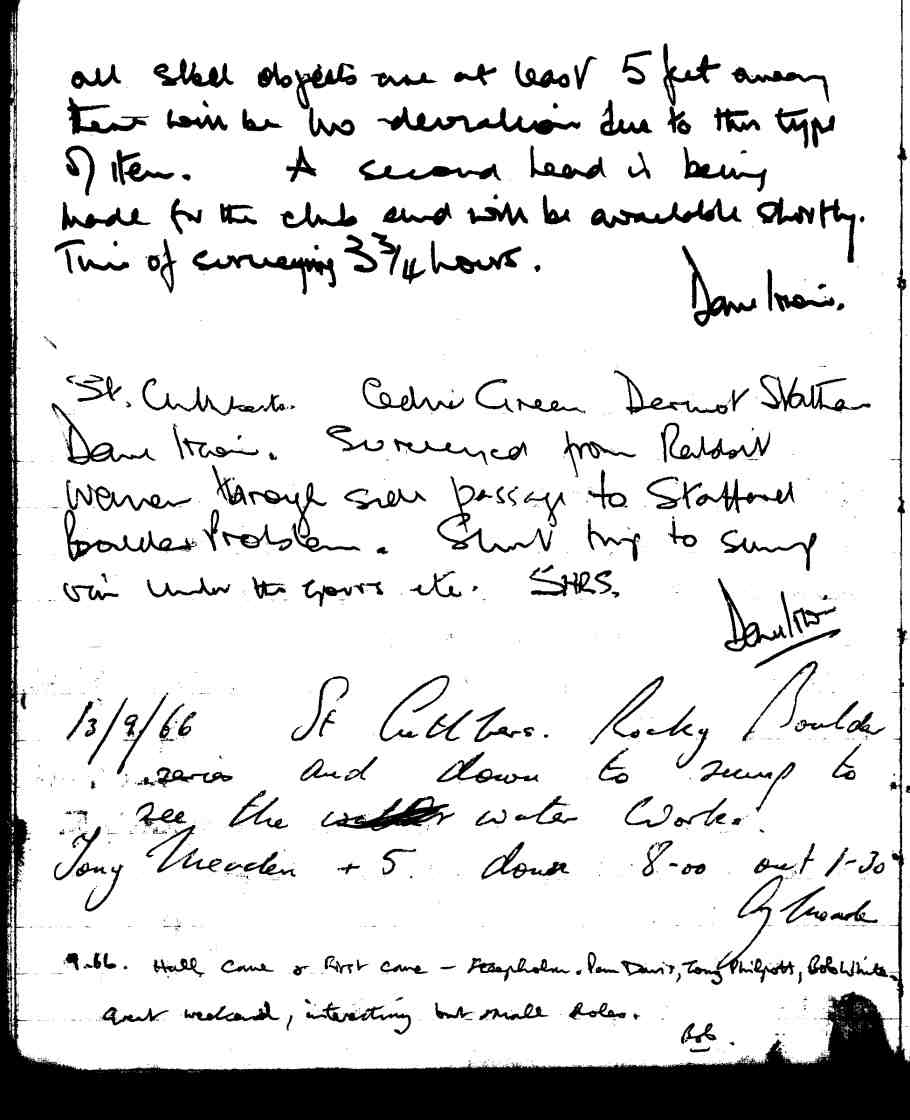 all steel objects are at least 5 feet away
there will be no deviation due to this type
of item. A second lead is being
made for the club and will be available shortly.
Time of surveying 3 3/4 hours.
Dave Irwin.
St. Cuthberts. Cedric Green Dermot Statham
Dave Irwin. Surveyed from Rabbit
Warren through side passage to Stafford
Boulder Problem. Short trip to sump
via Under the Gours etc. 5HRS.
Dave Irwin
13/9/66 St Cuthbers. Rocky Boulder
series and down to sump to
see the water works!
Tony Meaden + 5. down 8-00 out 1-30
Meaden
9.66. Hall Cave or First cave - Steepholm. Pam Davis, Tony Philpott, Bob White.
Great weekend, interesting but small holes.
Bob.